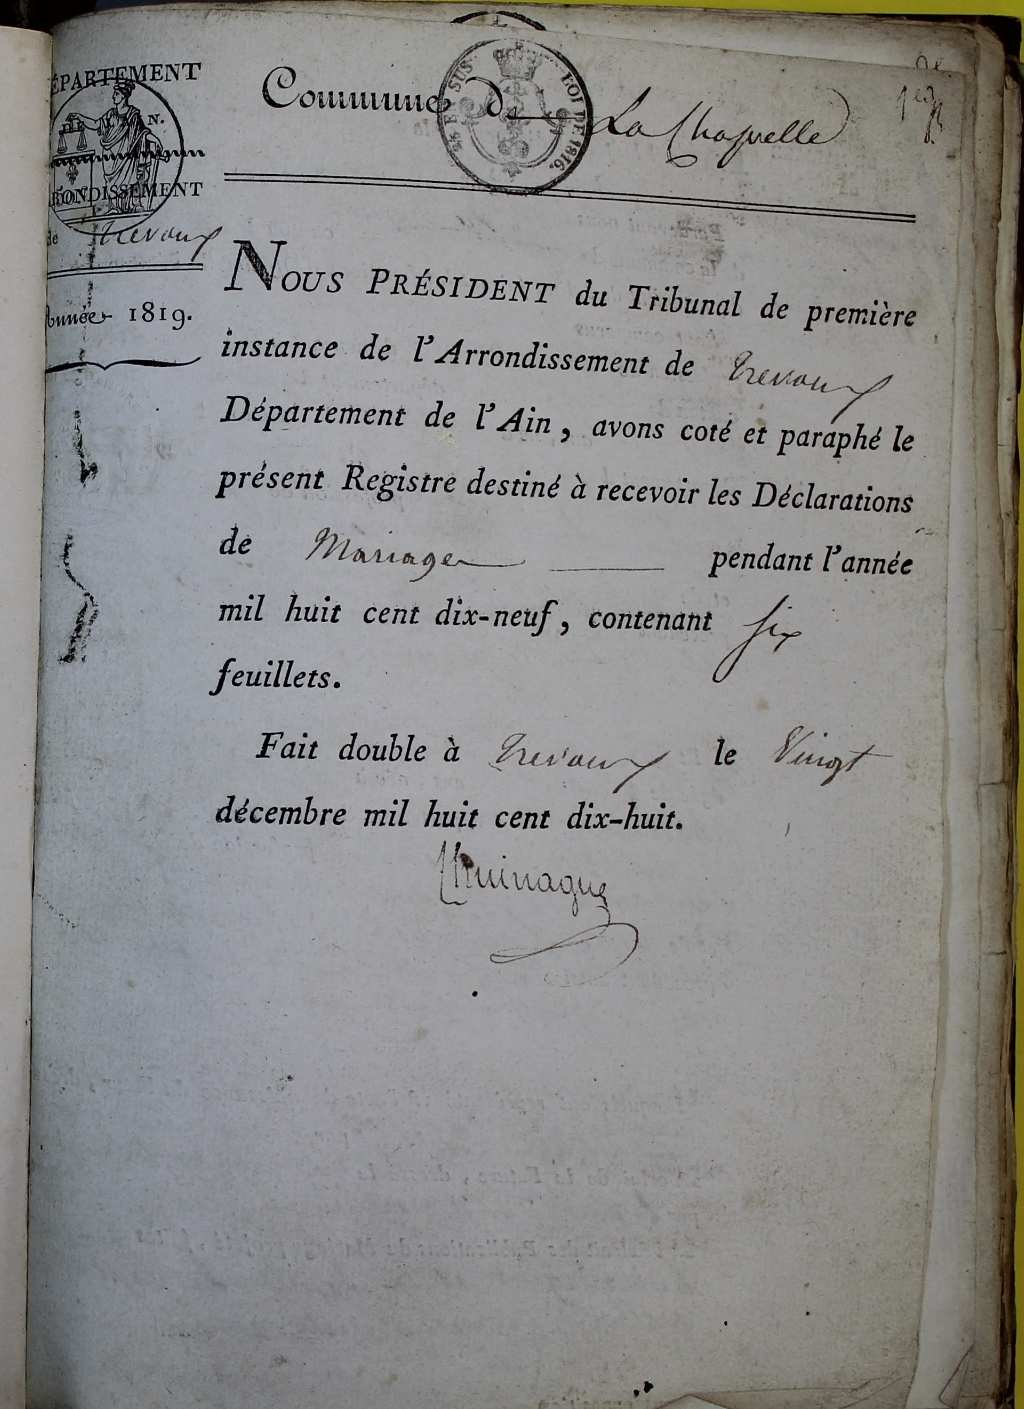 DÉPARTEMENT
N.
ARRONDISSEMENT
de Trevoux
Année 1819.
Commune de La Chapelle
LOI DE 1816.
1er
NOUS PRÉSIDENT du Tribunal de première
instance de l'Arrondissement de Trevoux
Département de l'Ain, avons coté et paraphé le
présent Registre destiné à recevoir les Déclarations
de Mariage pendant l'année
mil huit cent dix-neuf, contenant six
feuillets.
Fait double à Trevoux le Vingt
décembre mil huit cent dix-huit.